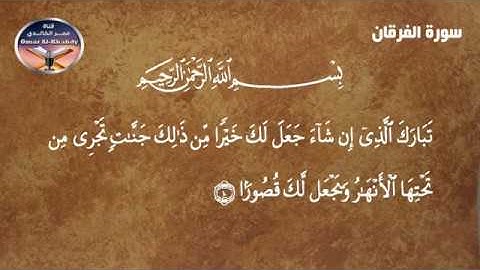 قناة
عمر الخالدي
Omar Al-Khalidy
سورة الفرقان
بِسْمِ اللَّهِ الرَّحْمَٰنِ الرَّحِيمِ
تَبَارَكَ ٱلَّذِىٓ إِن شَآءَ جَعَلَ لَكَ خَيْرًا مِّن ذَٰلِكَ جَنَّٰتٍ تَجْرِى مِن
تَحْتِهَا ٱلْأَنْهَٰرُ وَيَجْعَل لَّكَ قُصُورًۢا ١٠